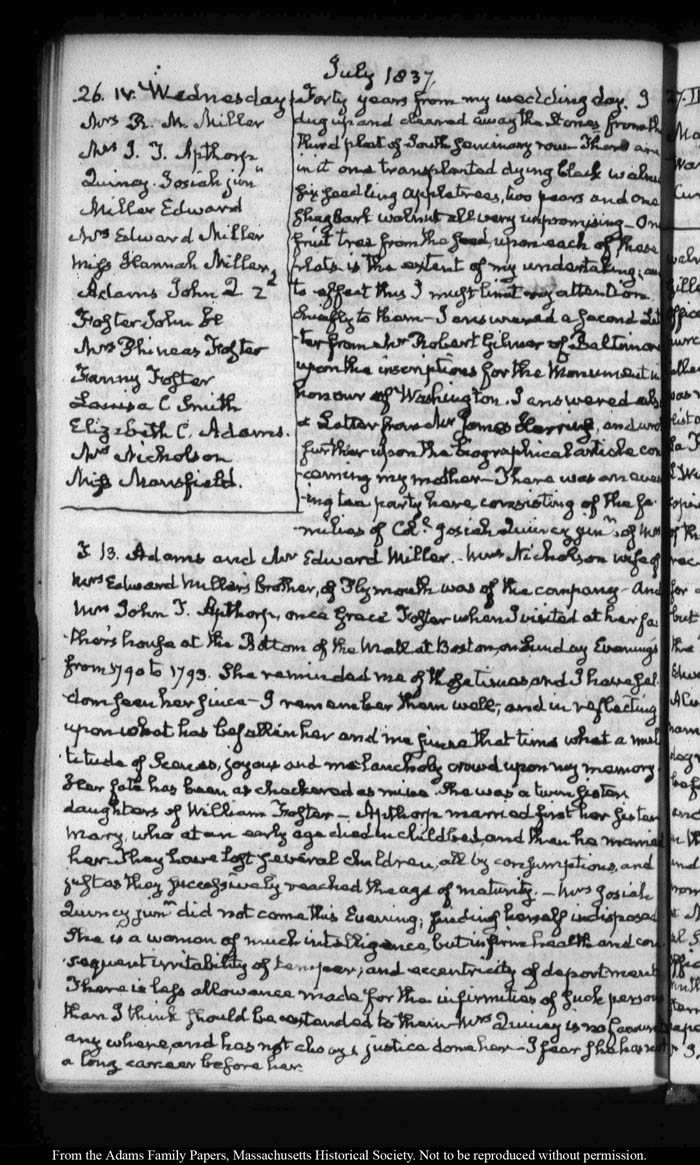 July 1837.
26. IV. Wednesday
Mrs R. M. Miller
Mrs J. T. Apthorp
Quincy. Josiah junr
Miller Edward
Mrs Edward Miller
Miss Hannah Miller
Adams John Q 2
Foster John H
Mrs Phineas Foster
Fanny Foster
Louisa C Smith
Elizabeth C. Adams.
Mrs Nicholson
Miss Marsfield.
Forty years from my wedding day. I
dug up and cleared away the stones from the
third plat of South Seminary row— There are
in it one transplanted dying black walnut
six seedling apple trees, two pears and one
Shagbark walnut all very unpromising— One
fruit tree from the seed, upon each of these
plats is the extent of my undertaking; and
to effect this I must limit my attention
chiefly to them— I answered a second Let-
ter from Mr Robert Gilmor of Baltimore
upon the inscriptions for the Monument in
honour of Washington. I answered also
a Letter from Mr James Herring, and wrote
further upon the biographical article con-
cerning my mother— There was an even-
ing tea party here, consisting of the fa-
milies of Coll Josiah Quincy junr, of Mrs
T. B. Adams and Mr Edward Miller.— Mrs Nicholson wife of
Mrs Edward Miller's brother, of Plymouth was of the company— And
Mrs John T. Apthorp, once Grace Foster whom I visited at her fa-
ther's house at the Bottom of the Mall at Boston, on Sunday Evenings
from 1790 to 1793. She reminded me of those times, and I have sel-
dom seen her since— I remember them well, and in reflecting
upon what has befallen her and me since that time what a mul-
titude of Scenes, joyous and melancholy crowd upon my memory.
Her fate has been as checkered as mine. She was a twin sister
daughters of William Foster— Apthorp married first her sister
Mary, who at an early age died in childbed, and then he married
her. They have lost several children, all by consumptions, and
just as they successively reached the age of maturity.— Mrs Josiah
Quincy junr did not come this Evening; finding herself indisposed
She is a woman of much intelligence, but infirm health and con-
sequent irritability of temper, and eccentricity of deportment.
There is less allowance made for the infirmities of such persons
than I think should be extended to them— Mrs Quincy is no favourite
any where, and has not always justice done her— I fear she has not
a long career before her.
From the Adams Family Papers, Massachusetts Historical Society. Not to be reproduced without permission.